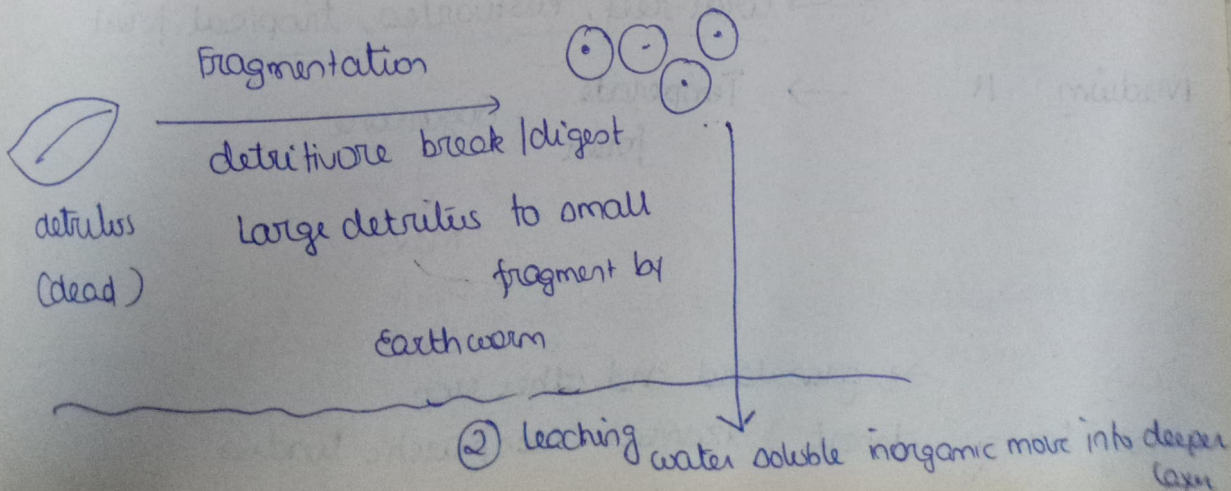 Fragmentation
detritivore break / digest
detritus
(dead)
Large detritus to small
fragment by
Earthworm
② leaching
water soluble inorganic move into deeper